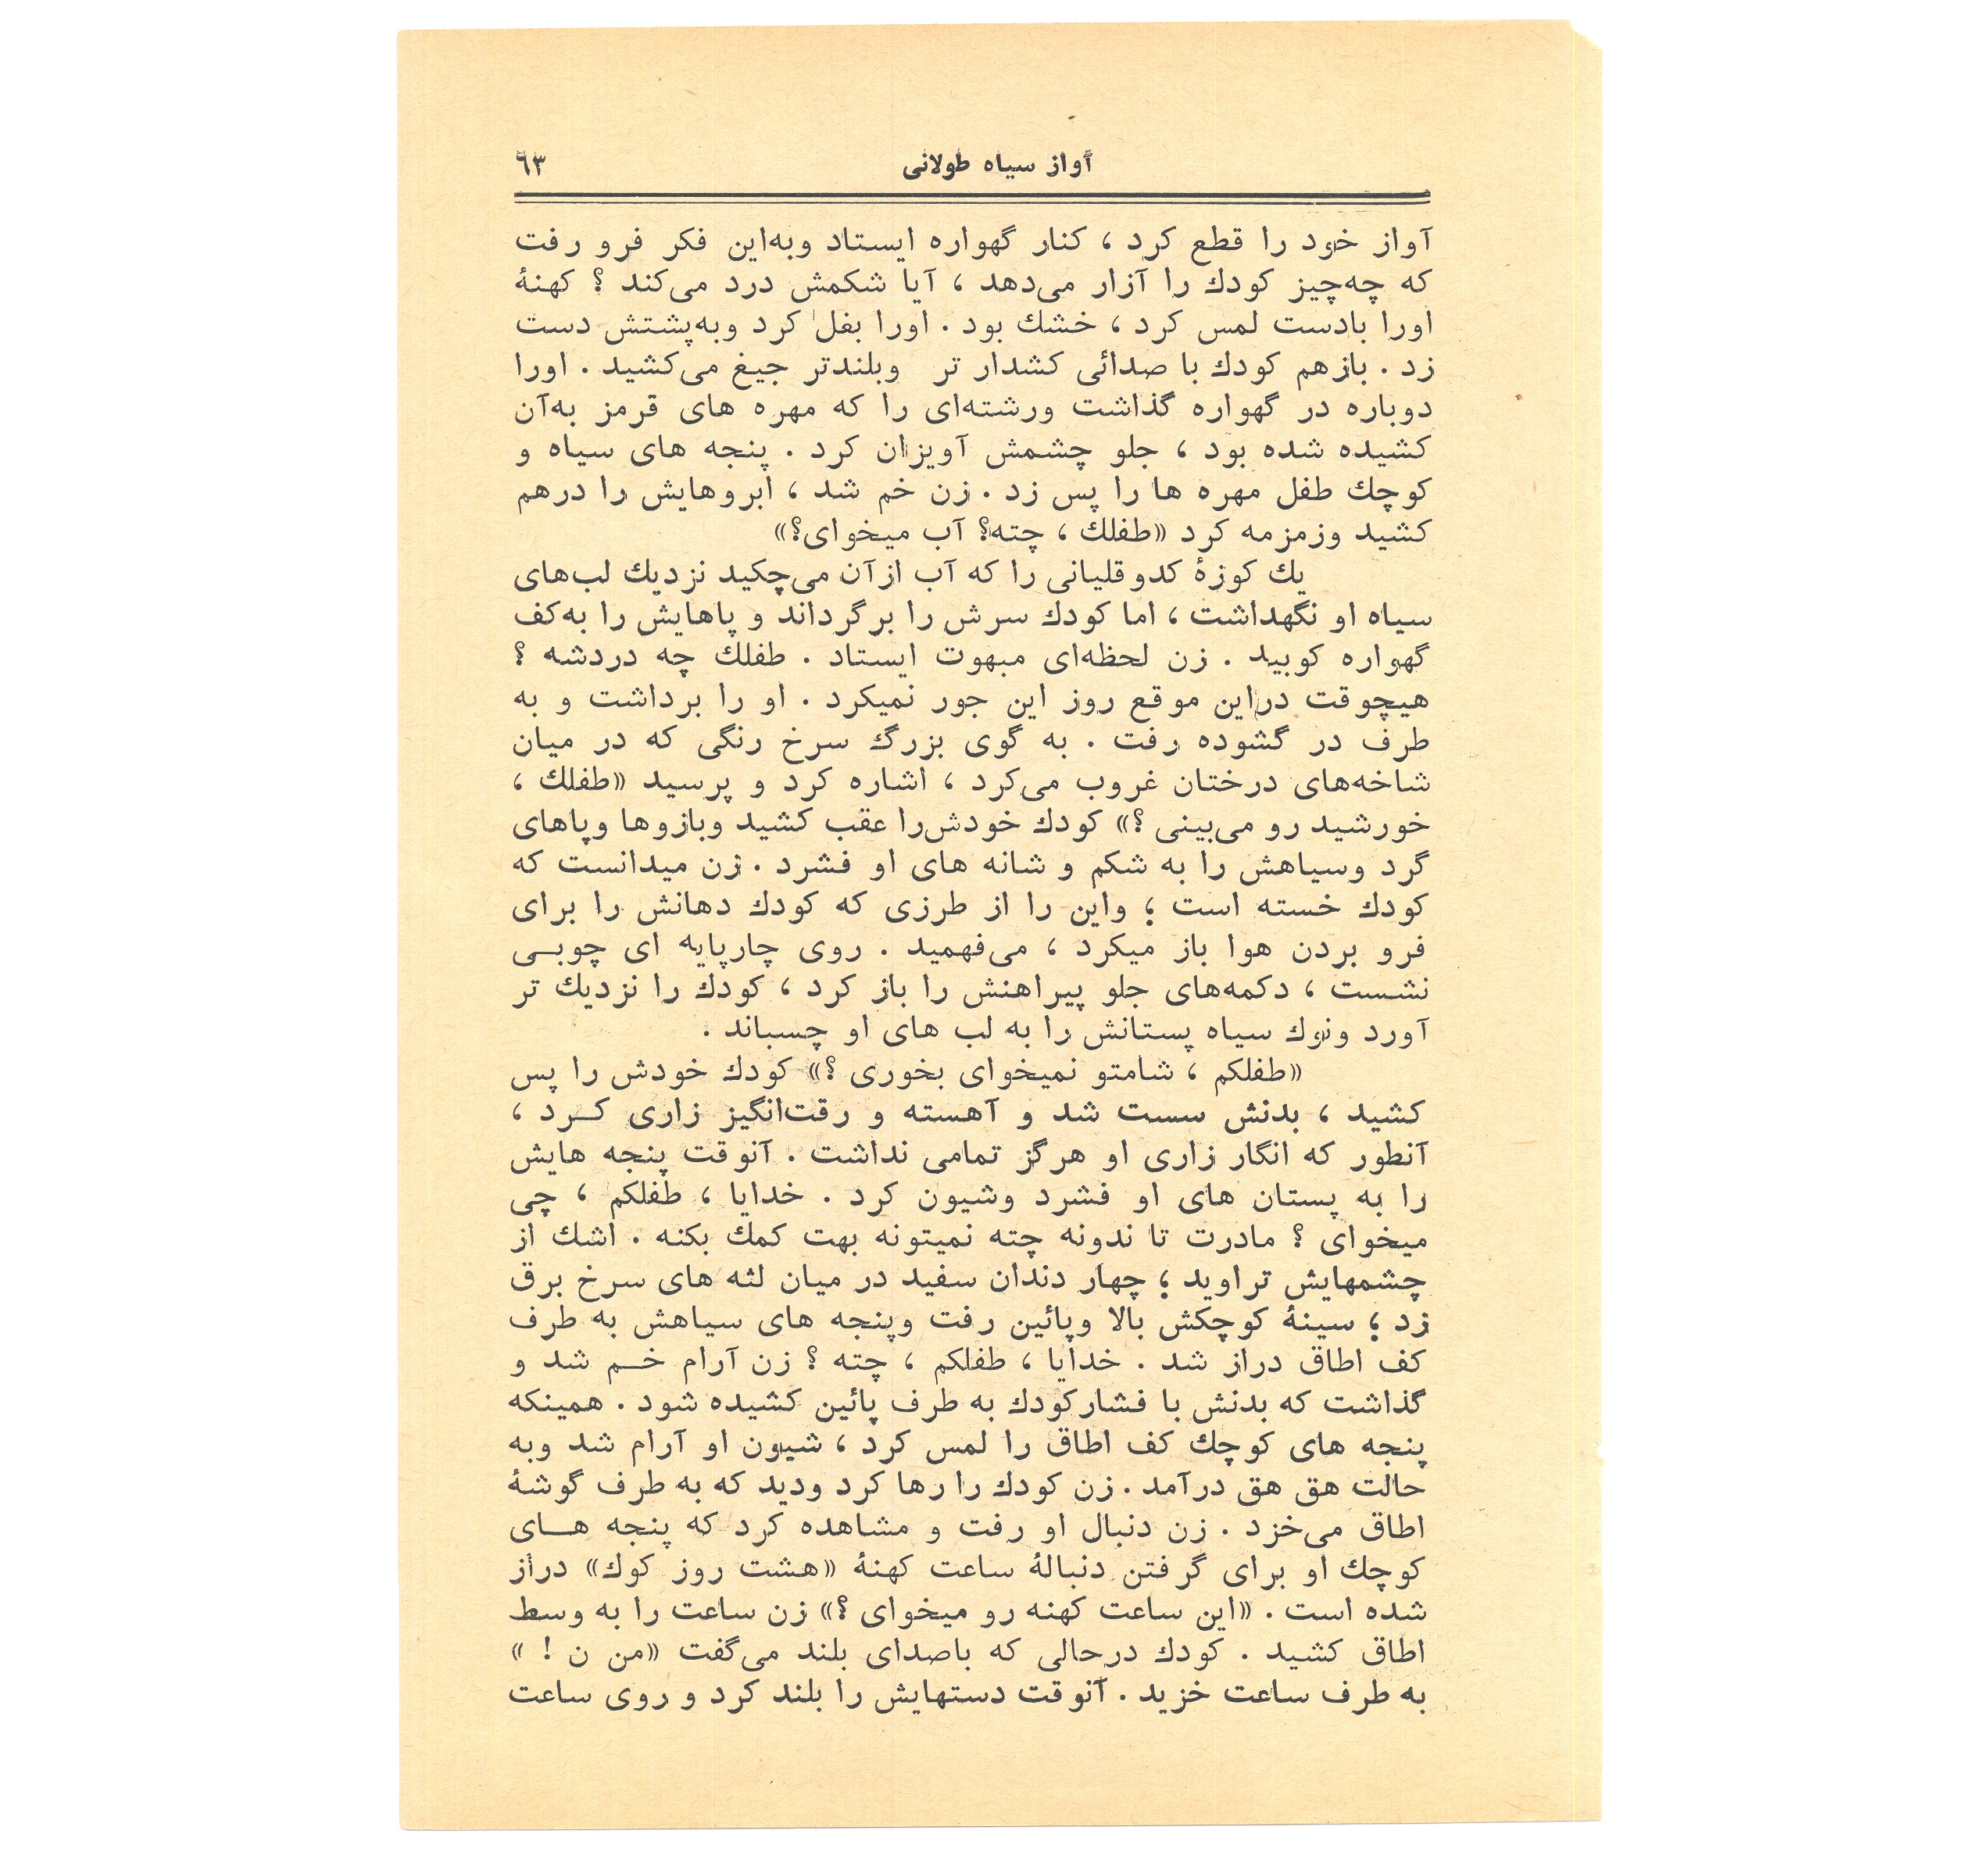 آواز سیاه طولانی
۶۳
آواز خود را قطع کرد ، کنار گهواره ایستاد وبه‌این فکر فرو رفت
که چه‌چیز کودك را آزار می‌دهد ، آیا شکمش درد می‌کند ؟ کهنهٔ
اورا بادست لمس کرد ، خشك بود . اورا بغل کرد وبه‌پشتش دست
زد . بازهم کودك با صدائی کشدار تر وبلندتر جیغ می‌کشید . اورا
دوباره در گهواره گذاشت ورشته‌ای را که مهره های قرمز به‌آن
کشیده شده بود ، جلو چشمش آویزان کرد . پنجه های سیاه و
کوچك طفل مهره ها را پس زد . زن خم شد ، ابروهایش را درهم
کشید وزمزمه کرد «طفلك ، چته؟ آب میخوای؟»
یك کوزهٔ کدوقلیانی را که آب ازآن می‌چکید نزدیك لب‌های
سیاه او نگهداشت ، اما کودك سرش را برگرداند و پاهایش را به‌کف
گهواره کوبید . زن لحظه‌ای مبهوت ایستاد . طفلك چه دردشه ؟
هیچوقت دراین موقع روز این جور نمیکرد . او را برداشت و به
طرف در گشوده رفت . به گوی بزرگ سرخ رنگی که در میان
شاخه‌های درختان غروب می‌کرد ، اشاره کرد و پرسید «طفلك ،
خورشید رو می‌بینی ؟» کودك خودش‌را عقب کشید وبازوها وپاهای
گرد وسیاهش را به شکم و شانه های او فشرد . زن میدانست که
کودك خسته است ؛ واین را از طرزی که کودك دهانش را برای
فرو بردن هوا باز میکرد ، می‌فهمید . روی چارپایه ای چوبـی
نشست ، دکمه‌های جلو پیراهنش را باز کرد ، کودك را نزدیك تر
آورد ونوك سیاه پستانش را به لب های او چسباند .
«طفلکم ، شامتو نمیخوای بخوری ؟» کودك خودش را پس
کشید ، بدنش سست شد و آهسته و رقت‌انگیز زاری کـرد ،
آنطور که انگار زاری او هرگز تمامی نداشت . آنوقت پنجه هایش
را به پستان های او فشرد وشیون کرد . خدایا ، طفلکم ، چی
میخوای ؟ مادرت تا ندونه چته نمیتونه بهت کمك بکنه . اشك از
چشمهایش تراوید ؛ چهار دندان سفید در میان لثه های سرخ برق
زد ؛ سینهٔ کوچکش بالا وپائین رفت وپنجه های سیاهش به طرف
کف اطاق دراز شد . خدایا ، طفلکم ، چته ؟ زن آرام خـم شد و
گذاشت که بدنش با فشارکودك به طرف پائین کشیده شود . همینکه
پنجه های کوچك کف اطاق را لمس کرد ، شیون او آرام شد وبه
حالت هق هق درآمد . زن کودك را رها کرد ودید که به طرف گوشهٔ
اطاق می‌خزد . زن دنبال او رفت و مشاهده کرد که پنجه هـای
کوچك او برای گرفتن دنبالهٔ ساعت کهنهٔ «هشت روز کوك» دراز
شده است . «این ساعت کهنه رو میخوای ؟» زن ساعت را به وسط
اطاق کشید . کودك درحالی که باصدای بلند می‌گفت «من ن ! »
به طرف ساعت خزید . آنوقت دستهایش را بلند کرد و روی ساعت